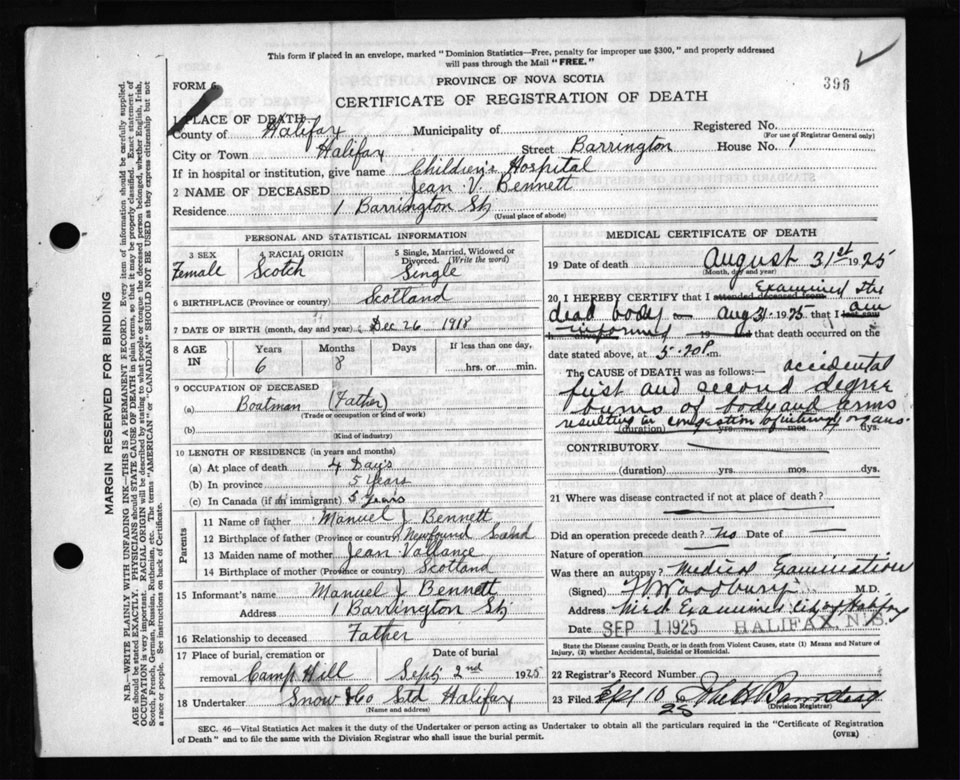 This form if placed in an envelope, marked "Dominion Statistics—Free, penalty for improper use $300," and properly addressed
will pass through the Mail "FREE."
396
PROVINCE OF NOVA SCOTIA
FORM 6.
CERTIFICATE OF REGISTRATION OF DEATH
1 PLACE OF DEATH
County of Halifax Municipality of Registered No.
(For use of Registrar General only)
City or Town Halifax Street Barrington House No. 1
If in hospital or institution, give name Children's Hospital
2 NAME OF DECEASED Jean V. Bennett
Residence 1 Barrington St
(Usual place of abode)
PERSONAL AND STATISTICAL INFORMATION
3 SEX 4 RACIAL ORIGIN 5 Single, Married, Widowed or Divorced. (Write the word)
Female Scotch Single
6 BIRTHPLACE (Province or country) Scotland
7 DATE OF BIRTH (month, day and year) Dec 26 1918
8 AGE IN Years Months Days If less than one day,
6 8 hrs. or min.
9 OCCUPATION OF DECEASED
(a) Boatman (Father)
(Trade or occupation or kind of work)
(b)
(Kind of industry)
10 LENGTH OF RESIDENCE (in years and months)
(a) At place of death 4 Days
(b) In province 5 Years
(c) In Canada (if an immigrant) 5 Years
Parents
11 Name of father Manuel J. Bennett
12 Birthplace of father (Province or country) Newfound Land
13 Maiden name of mother Jean Vallance
14 Birthplace of mother (Province or country) Scotland
15 Informant's name Manuel J. Bennett
Address 1 Barrington St
16 Relationship to deceased Father
17 Place of burial, cremation or removal Date of burial
Camp Hill Sept 2nd 1925
18 Undertaker Snow & Co Ltd Halifax
(Name and address)
MEDICAL CERTIFICATE OF DEATH
19 Date of death August 31st 1925
(Month, day and year)
20 I HEREBY CERTIFY that I attended deceased from Examined the
dead body to Aug 31 1925 that I last saw am
informed 19 and that death occurred on the
date stated above, at 5-20 P.m.
The CAUSE of DEATH was as follows:— accidental
first and second degree
burns of body and arms
resulting in congestion of internal organs.
(duration) yrs. mos. dys.
CONTRIBUTORY
(duration) yrs. mos. dys.
21 Where was disease contracted if not at place of death?
Did an operation precede death? No Date of
Nature of operation
Was there an autopsy? Medical Examination
(Signed) Woodbury M.D.
Address Med Examiner City of Halifax
Date SEP 1 1925 HALIFAX, N.S.
State the Disease causing Death, or in death from Violent Causes, state (1) Means and Nature of
Injury, (2) whether Accidental, Suicidal or Homicidal.
22 Registrar's Record Number
23 Filed Sept 10 25
(Division Registrar)
SEC. 46—Vital Statistics Act makes it the duty of the Undertaker or person acting as Undertaker to obtain all the particulars required in the "Certificate of Registration
of Death" and to file the same with the Division Registrar who shall issue the burial permit.
(OVER)
MARGIN RESERVED FOR BINDING
N.B.—WRITE PLAINLY WITH UNFADING INK—THIS IS A PERMANENT RECORD. Every item of information should be carefully supplied.
AGE should be stated EXACTLY. PHYSICIANS should STATE CAUSE OF DEATH in plain terms, so that it may be properly classified. Exact statement of
OCCUPATION is very important. RACIAL ORIGIN will be described by stating to what people or tongue the deceased person belonged, whether English, Irish,
Scotch, French, German, Russian, Ruthenian, etc. The terms "AMERICAN" or "CANADIAN" SHOULD NOT BE USED as they express citizenship but not
a race or people. See instructions on back of Certificate.